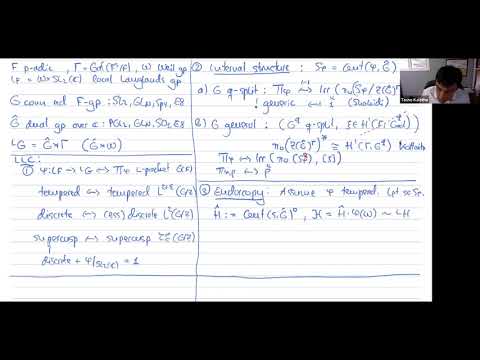 F p-adic , Γ = Gal(Γ^s/F) , W Weil gp
L_F = W × SL_2(ℂ) local Langlands gp
G conn. red F-gp : SL_2, GL_N, Sp_N, E8
Ĝ dual gp over ℂ : PGL_2, GL_N, SO_N, E8
^LG = Ĝ ⋊ Γ (Ĝ ⋊ W)
LLC:
① φ: L_F → ^LG ↔ Π_φ L-packet G(F)
tempered ↔ tempered
discrete ↔ (ess) discrete L²(G/Z)
supercusp ↔ supercusp
discrete + φ/SL_2(ℂ) = 1
② Internal structure : S_φ = Cent(φ, Ĝ)
a) G q-split : Π_φ ↔ Irr(π_0(S_φ/Z(Ĝ)^Γ))
! generic ↔ 1 (Shahidi)
b) G general : (G^q q-split, ξ ∈ H^1(F, G^q_ad))
π_0(Z(Ĝ)^Γ)^* ≅ H^1(Γ, G^q) Kottwitz
Π_φ ↔ Irr(π_0(S_φ), [ξ])
③ Endoscopy : Assume φ tempered. Let s ∈ S_φ.
Ĥ := Cent(s, Ĝ)^0 , ℋ = Ĥ·φ(W) ~ ^LH
Tasho Kaletha